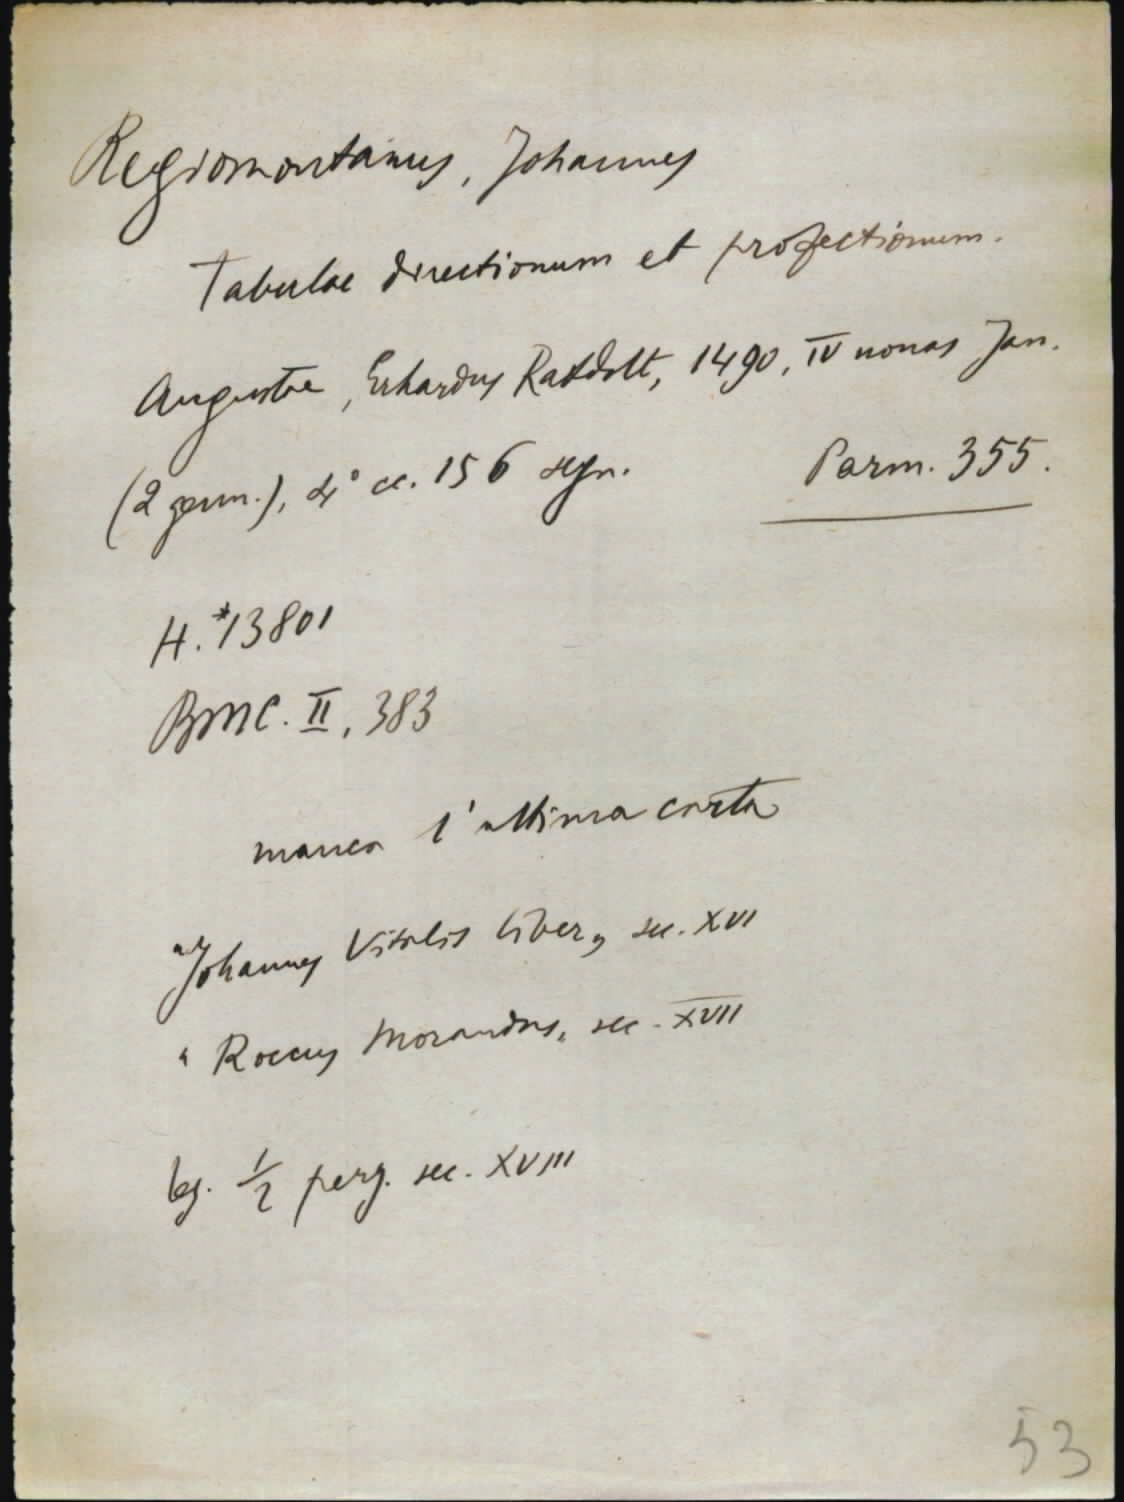 Regiomontanus, Johannes
Tabulae directionum et profectionum.
Auguste, Erhardus Ratdolt, 1490, IV nonas Jan.
(2 genn.), 4° cc. 156 segn. Parm. 355.
H.*13801
BMC. II, 383
manca l'ultima carta
"Johannes Vitalis liber„ sec. XVI
" Roccus Morandus„ sec. XVII
leg. 1/2 perg. sec. XVIII
53